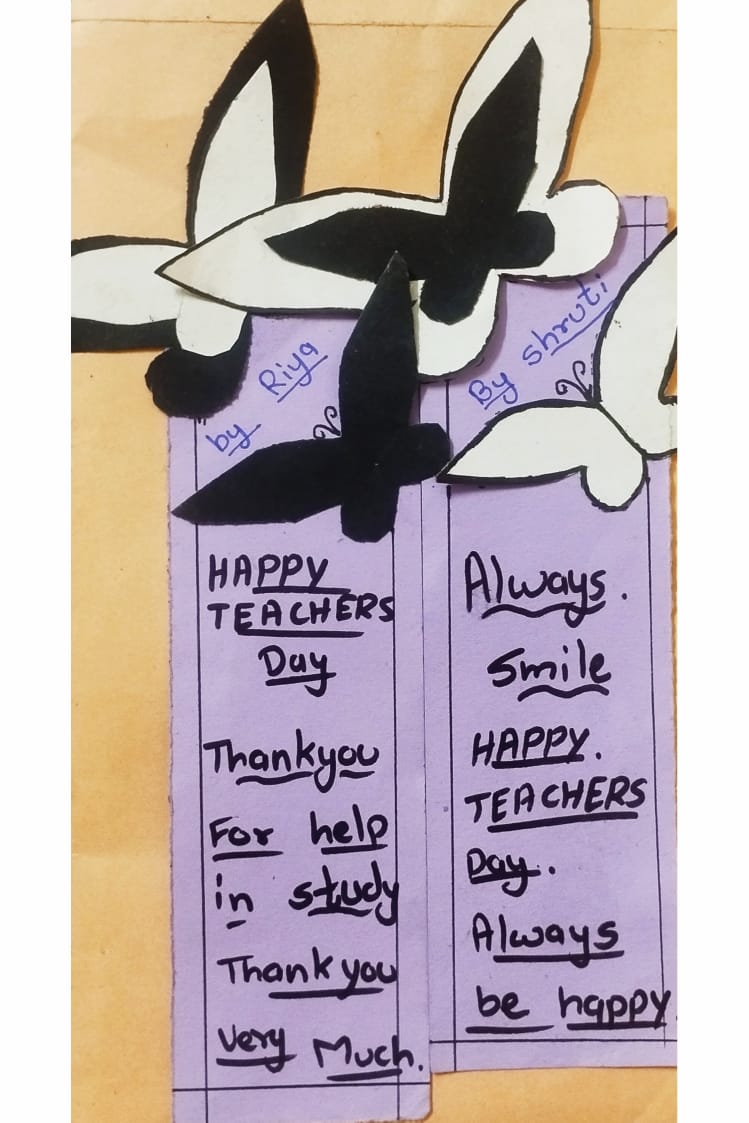 by Riya
HAPPY
TEACHERS
Day
Thankyou
For help
in study
Thank you
Very Much.
By shruti
Always.
Smile
HAPPY.
TEACHERS
Day.
Always
be happy